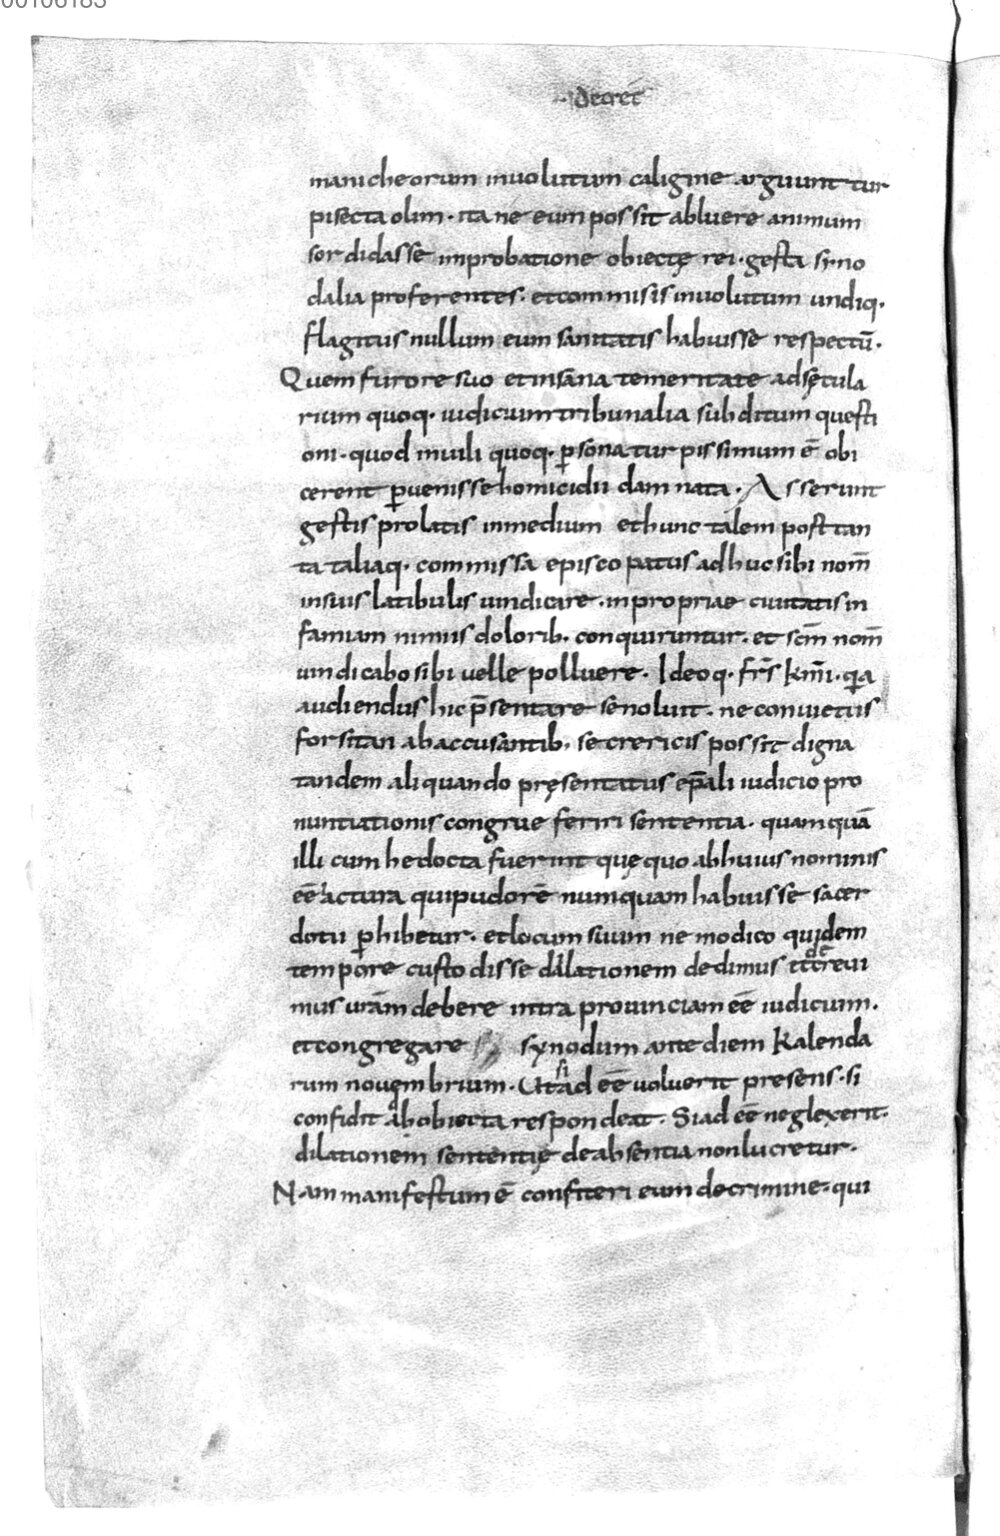 00106183
decret̄
manicheorum inuolutum caligine arguunt tur
pi secta olim · ita ne eum possit abluere animum
sordidasse improbatione obiectę rei · gesta syno
dalia proferentes · et commisis inuolutum undiq·
flagitiis nullum eum sanitatis habuisse respectū ·
Quem furore suo et insana temeritate ad sęcula
rium quoq· iudicum tribunalia subditum questi
oni · quod in uili quoq· ꝑsona turpissimum ē obi
cerent ꝑuenisse homicidii damnata · Asserunt
gestis prolatis in medium et hunc talem post tan
ta taliaq· commissa episcopatus adhuc sibi nom̄
in suis latibulis uindicare · in propriae ciuitatis in
famiam nimiis dolorib· conquiruntur · et sc̄m nom̄
uindicabo sibi uelle polluere · Ideoq· fr̄s km̄i · q̄a
audiendus hic p̄sentare se noluit · ne conuictus
forsitan ab accusantib· secrericis possit digna
tandem aliquando pręsentatus ep̄ali iudicio pro
nuntiationis congrue feriri sententia · quamquā
illi cum he docta fuerint quę quo ab huius nominis
eē iactura qui pudorē numquam habuisse sacer
dotii ꝑhibetur · et locum suum ne modico quidem
tempore custodisse dilationem dedimus et decreui
mus ur̄am debere intra prouinciam eē iudicium ·
et congregare synodum ante diem Kalenda
rum nouembrium · Ut si ad eē uoluerit presens · si
confidit ad obiecta respondeat · Si ad eē neglexerit ·
dilationem sententię de absentia non lucretur ·
Nam manifestum ē confiteri eum de crimine · qui